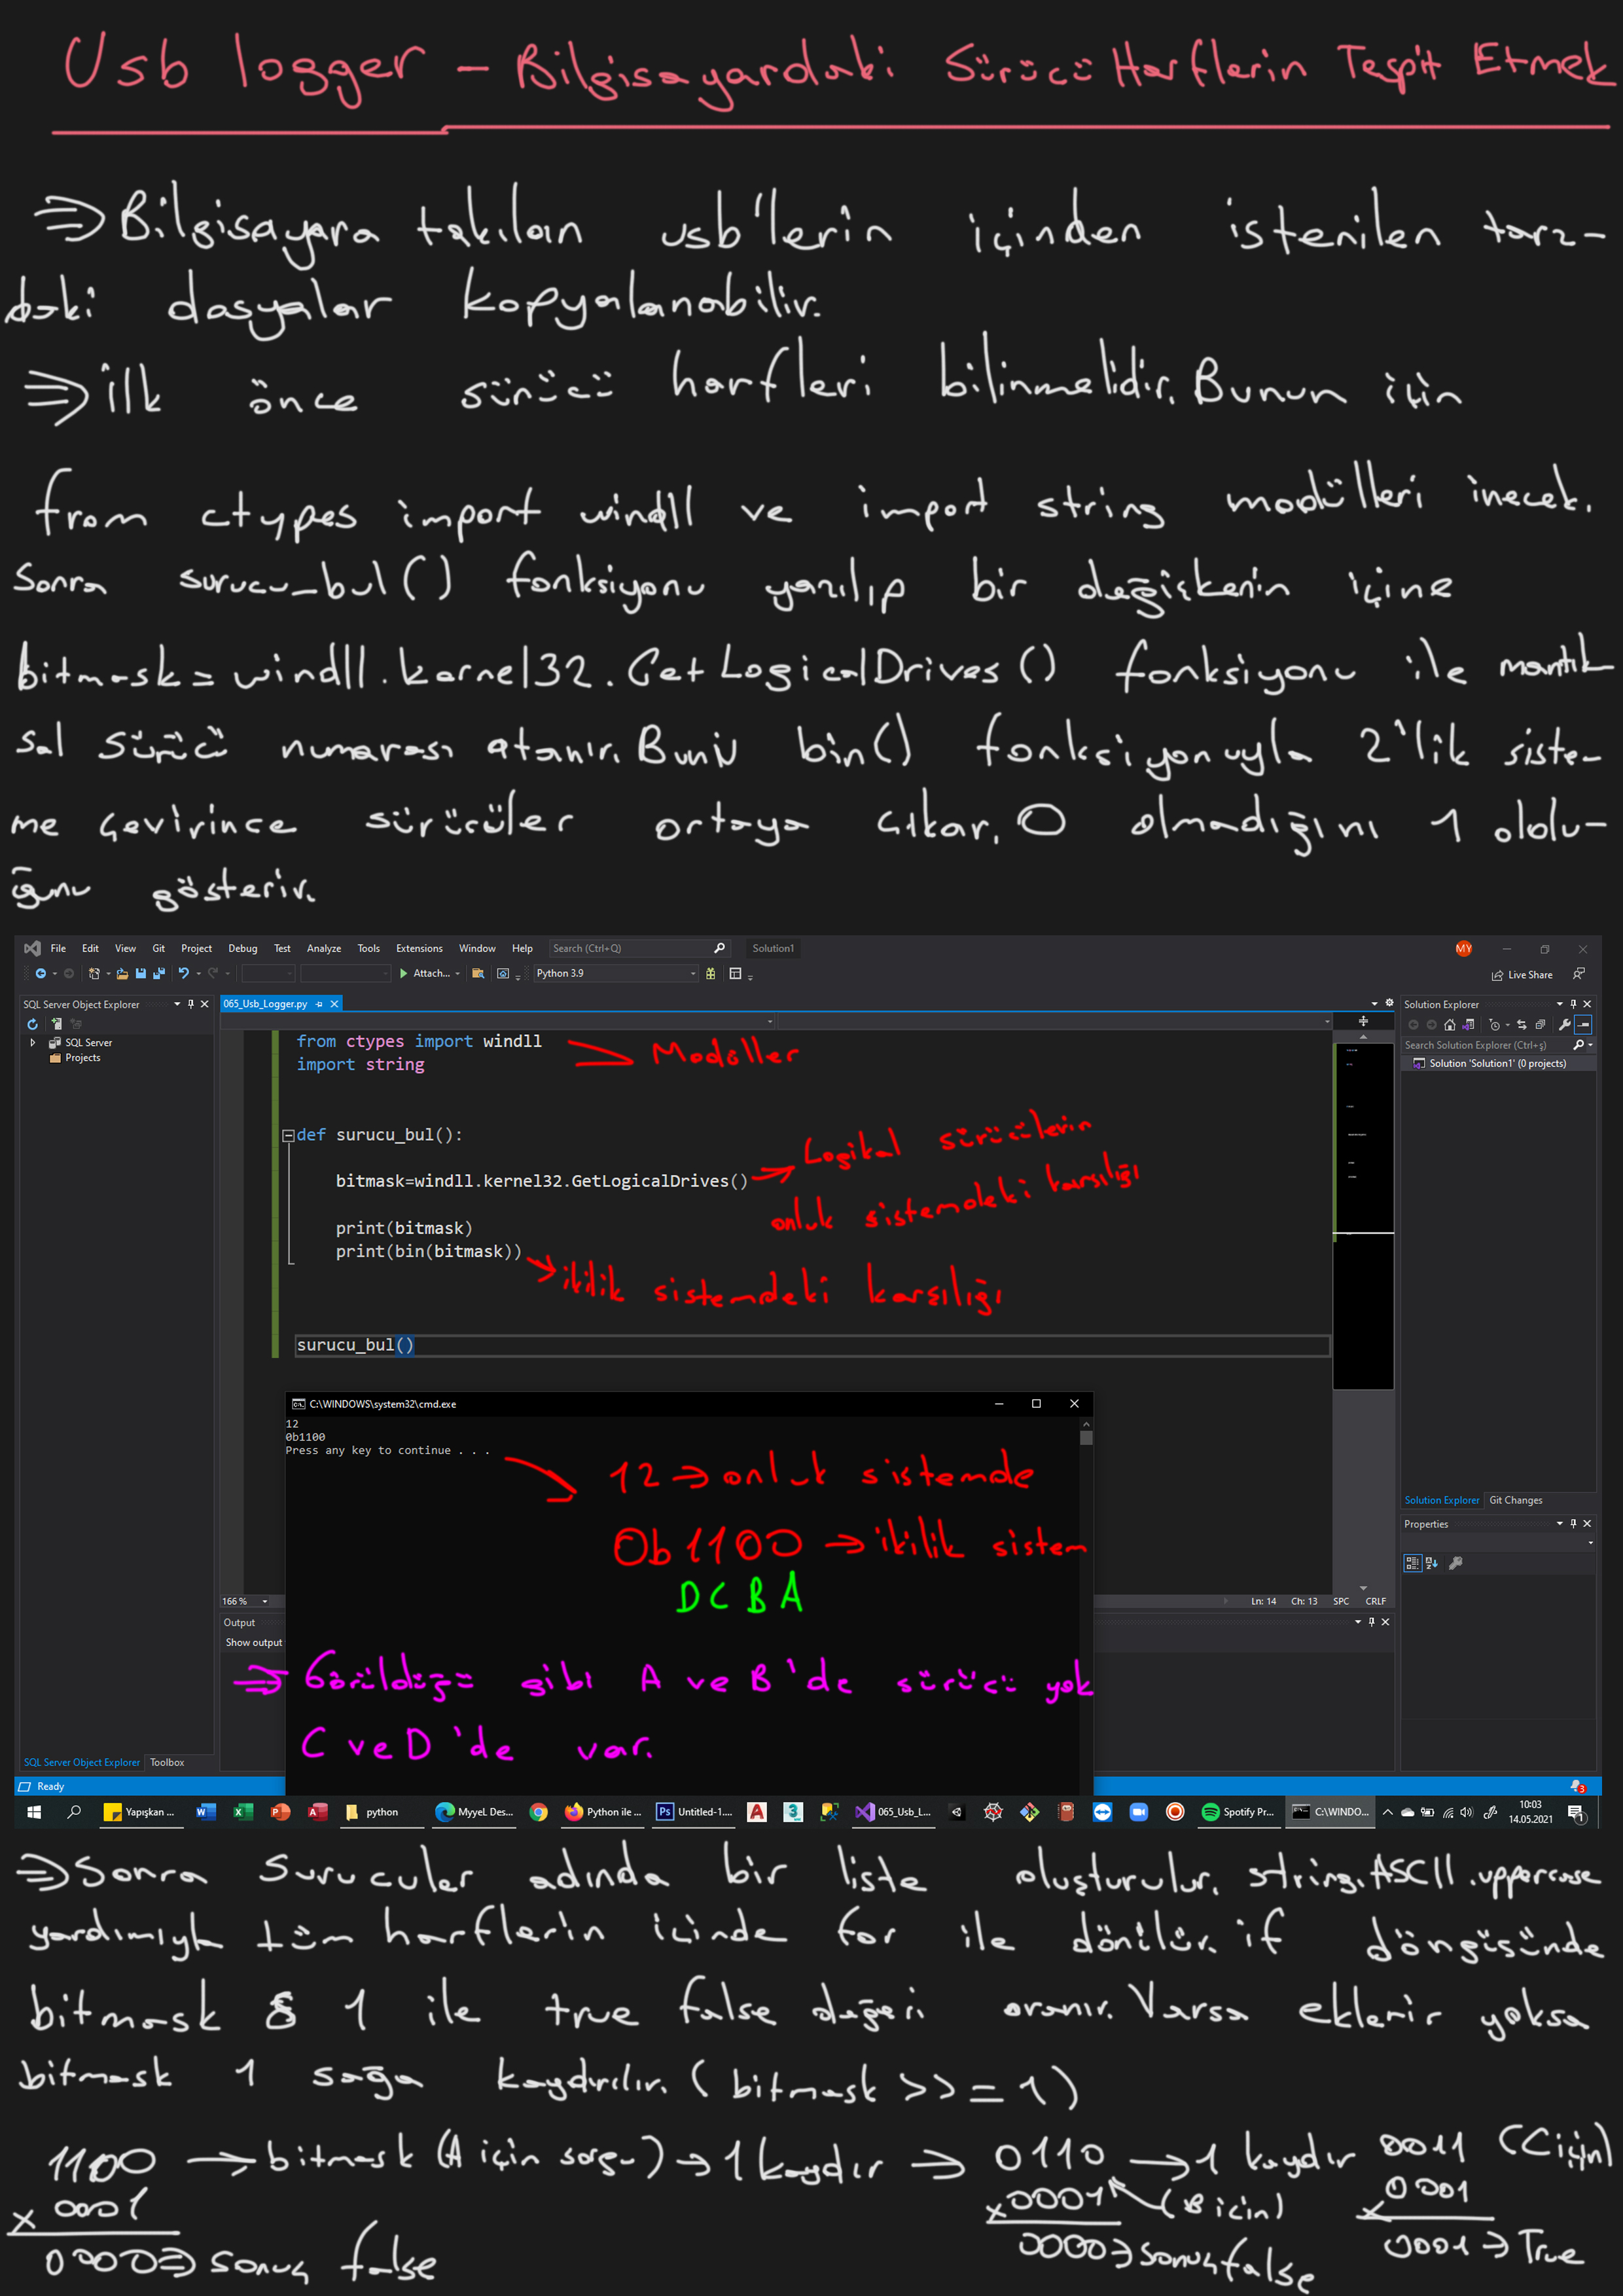 Usb logger - Bilgisayardaki Sürücü Harflerin Tespit Etmek
⇒ Bilgisayara takılan usb'lerin içinden istenilen tarz-
daki dosyalar kopyalanabilir.
⇒ ilk önce sürücü harfleri bilinmelidir. Bunun için
from ctypes import windll ve import string modülleri inecek.
Sonra surucu_bul() fonksiyonu yazılıp bir değişkenin içine
bitmask = windll.kernel32.GetLogicalDrives() fonksiyonu ile mantık
sal sürücü numarası atanır. Bunu bin() fonksiyonuyla 2'lik siste-
me çevirince sürücüler ortaya çıkar. 0 olmadığını 1 oldu-
ğunu gösterir.
File Edit View Git Project Debug Test Analyze Tools Extensions Window Help Search (Ctrl+Q) Solution1 MY
Attach... Python 3.9 Live Share
SQL Server Object Explorer 065_Usb_Logger.py Solution Explorer
SQL Server
Projects
Search Solution Explorer (Ctrl+ş)
Solution 'Solution1' (0 projects)
from ctypes import windll → Modüller
import string
def surucu_bul():
bitmask=windll.kernel32.GetLogicalDrives() → Logikal sürücülerin
onluk sistemdeki karşılığı
print(bitmask)
print(bin(bitmask)) → ikilik sistemdeki karşılığı
surucu_bul()
C:\WINDOWS\system32\cmd.exe
12
0b1100
Press any key to continue . . .
12 → onluk sistemde
0b1100 → ikilik sistem
D C B A
Solution Explorer Git Changes
Properties
166 % Ln: 14 Ch: 13 SPC CRLF
Output
Show output
⇒ Görüldüğü gibi A ve B'de sürücü yok
C ve D'de var.
SQL Server Object Explorer Toolbox
Ready 3
Yapışkan ... python MyyeL Des... Python ile ... Untitled-1.... 065_Usb_L... Spotify Pr... C:\WINDO... 10:03
14.05.2021 1
⇒ Sonra Suruculer adında bir liste oluşturulur. string.ASCII.uppercase
yardımıyla tüm harflerin içinde for ile dönülür. if döngüsünde
bitmask & 1 ile true false değeri aranır. Varsa eklenir yoksa
bitmask 1 sağa kaydırılır. (bitmask >>= 1)
1100 → bitmask (A için sorgu) → 1 kaydır ⇒ 0110 → 1 kaydır 0011 (C için)
x 0001 x 0001 (B için) x 0001
0000 ⇒ sonuç false 0000 ⇒ sonuç false 0001 ⇒ True